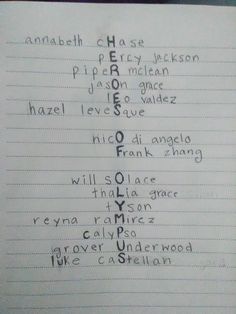 annabeth cHase
pErcy jackson
pipeR mclean
jasOn grace
lEo valdez
hazel leveSque
nicO di angelo
Frank zhang
will sOlace
thaLia grace
tYson
reyna raMirez
calyPso
grover Underwood
luke caStellan